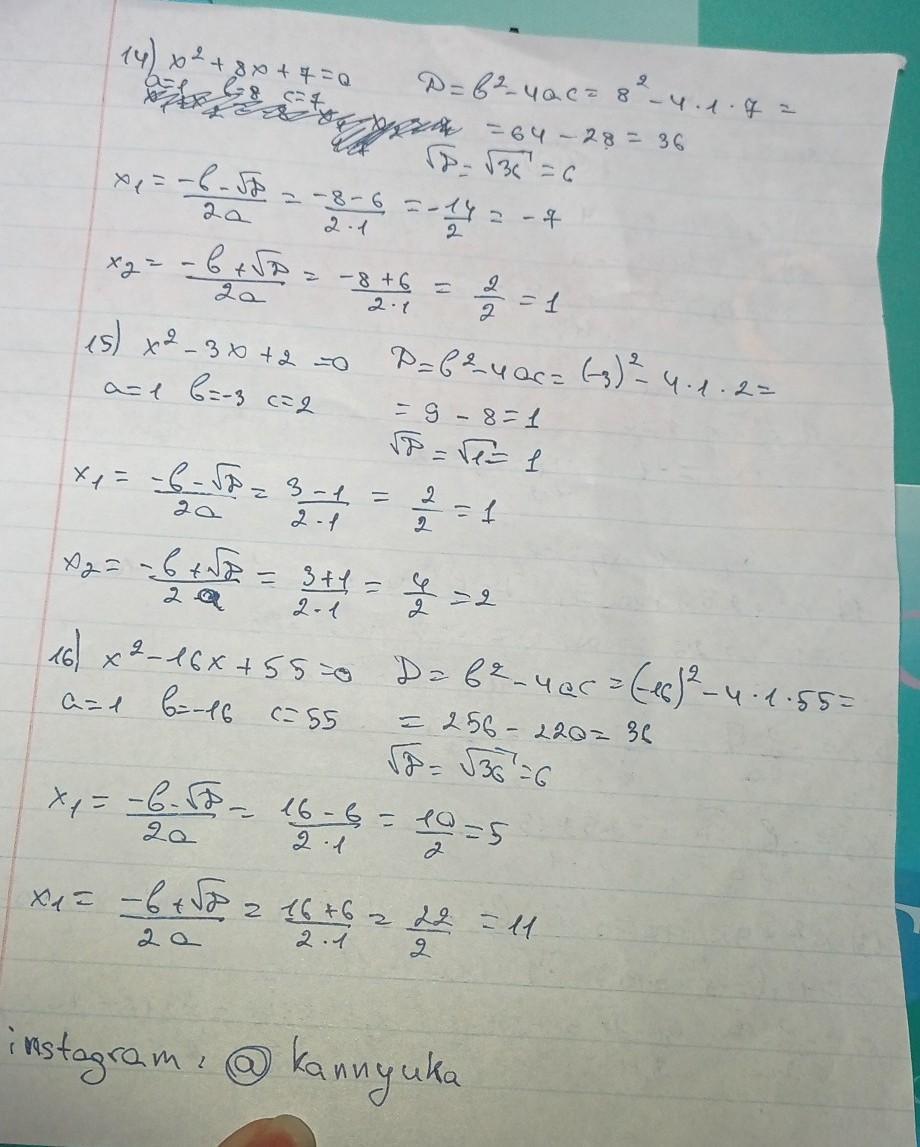 14) x² + 8x + 7 = 0    D = b² - 4ac = 8² - 4·1·7 =
a=1 b=8 c=7
= 64 - 28 = 36
√D = √36 = 6
x₁ = (-b - √D)/(2a) = (-8 - 6)/(2·1) = -14/2 = -7
x₂ = (-b + √D)/(2a) = (-8 + 6)/(2·1) = 2/2 = 1
15) x² - 3x + 2 = 0    D = b² - 4ac = (-3)² - 4·1·2 =
a=1 b=-3 c=2    = 9 - 8 = 1
√D = √1 = 1
x₁ = (-b - √D)/(2a) = (3 - 1)/(2·1) = 2/2 = 1
x₂ = (-b + √D)/(2a) = (3 + 1)/(2·1) = 4/2 = 2
16) x² - 16x + 55 = 0    D = b² - 4ac = (-16)² - 4·1·55 =
a=1 b=-16 c=55    = 256 - 220 = 36
√D = √36 = 6
x₁ = (-b - √D)/(2a) = (16 - 6)/(2·1) = 10/2 = 5
x₁ = (-b + √D)/(2a) = (16 + 6)/(2·1) = 22/2 = 11
instagram: @kannyuka